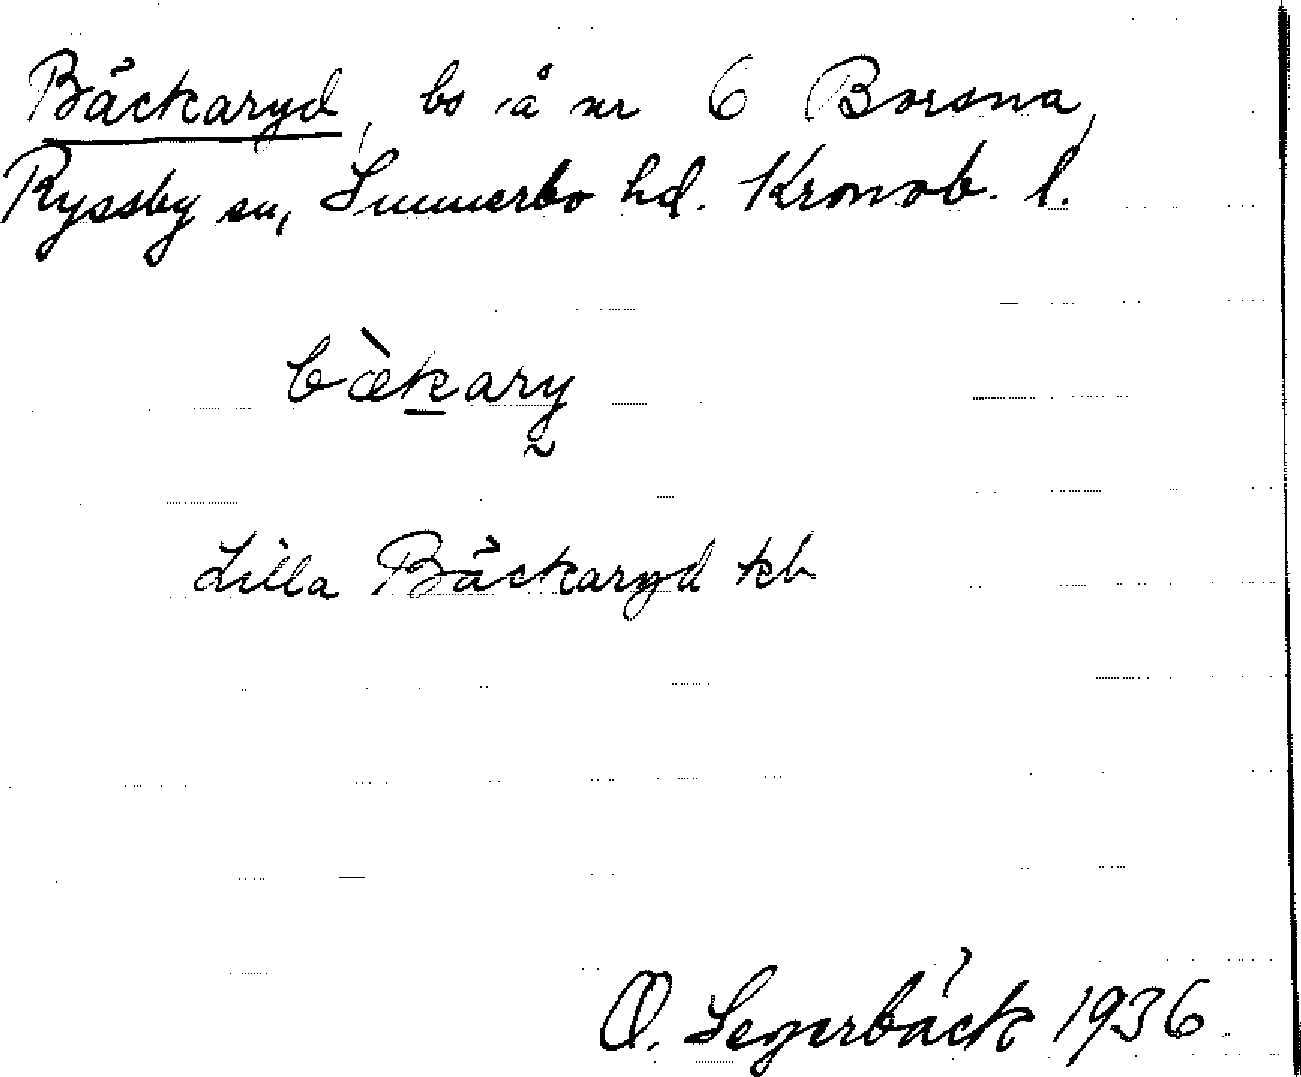 Bäckaryd, bs å nr 6 Borsna,
Ryssby sn, Sunnerbo hd. Kronob. l.
bæ̀kary
Lilla Bäckaryd kb
O. Segerbäck 1936